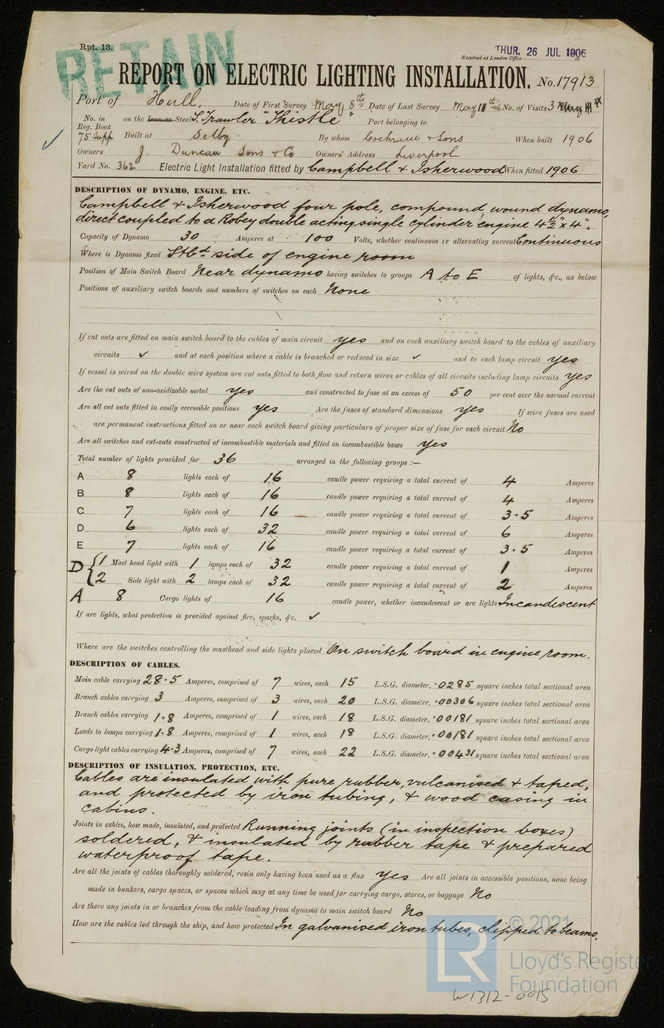 Rpt. 13.
RETAIN
THUR. 26 JUL 1906
Received at London Office
REPORT ON ELECTRIC LIGHTING INSTALLATION. No. 17913
Port of Hull. Date of First Survey May 8th Date of Last Survey May 11th No. of Visits 3
No. in Reg. Book 75 Supp on the Iron or Steel S. Trawler "Thistle" Port belonging to
Built at Selby By whom Cochrane & Sons When built 1906
Owners J. Duncan Sons & Co Owners' Address Liverpool
Yard No. 362 Electric Light Installation fitted by Campbell & Isherwood When fitted 1906
DESCRIPTION OF DYNAMO, ENGINE, ETC.
Campbell & Isherwood four pole, compound wound dynamo,
direct coupled to a Robey double acting single cylinder engine 4½" x 4".
Capacity of Dynamo 30 Amperes at 100 Volts, whether continuous or alternating current Continuous
Where is Dynamo fixed Stbd side of engine room
Position of Main Switch Board Near dynamo having switches to groups A to E of lights, &c., as below
Positions of auxiliary switch boards and numbers of switches on each None
If cut outs are fitted on main switch board to the cables of main circuit yes and on each auxiliary switch board to the cables of auxiliary
circuits ✓ and at each position where a cable is branched or reduced in size ✓ and to each lamp circuit yes
If vessel is wired on the double wire system are cut outs fitted to both flow and return wires or cables of all circuits including lamp circuits yes
Are the cut outs of non-oxidizable metal yes and constructed to fuse at an excess of 50 per cent over the normal current
Are all cut outs fitted in easily accessible positions yes Are the fuses of standard dimensions yes If wire fuses are used
are permanent instructions fitted on or near each switch board giving particulars of proper size of fuse for each circuit No
Are all switches and cut-outs constructed of incombustible materials and fitted on incombustible bases yes
Total number of lights provided for 36 arranged in the following groups :—
A 8 lights each of 16 candle power requiring a total current of 4 Amperes
B 8 lights each of 16 candle power requiring a total current of 4 Amperes
C 7 lights each of 16 candle power requiring a total current of 3.5 Amperes
D 6 lights each of 32 candle power requiring a total current of 6 Amperes
E 7 lights each of 16 candle power requiring a total current of 3.5 Amperes
D { 1 Mast head light with 1 lamps each of 32 candle power requiring a total current of 1 Amperes
2 Side light with 2 lamps each of 32 candle power requiring a total current of 2 Amperes
A 8 Cargo lights of 16 candle power, whether incandescent or arc lights Incandescent
If arc lights, what protection is provided against fire, sparks, &c. ✓
Where are the switches controlling the masthead and side lights placed On switch board in engine room.
DESCRIPTION OF CABLES.
Main cable carrying 28.5 Amperes, comprised of 7 wires, each 15 L.S.G. diameter, .0285 square inches total sectional area
Branch cables carrying 3 Amperes, comprised of 3 wires, each 20 L.S.G. diameter, .00306 square inches total sectional area
Branch cables carrying 1.8 Amperes, comprised of 1 wires, each 18 L.S.G. diameter, .00181 square inches total sectional area
Leads to lamps carrying 1.8 Amperes, comprised of 1 wires, each 18 L.S.G. diameter, .00181 square inches total sectional area
Cargo light cables carrying 4.3 Amperes, comprised of 7 wires, each 22 L.S.G. diameter, .00431 square inches total sectional area
DESCRIPTION OF INSULATION, PROTECTION, ETC.
Cables are insulated with pure rubber, vulcanised & taped,
and protected by iron tubing, & wood casing in
cabins.
Joints in cables, how made, insulated, and protected Running joints (in inspection boxes)
soldered, & insulated by rubber tape & prepared
waterproof tape.
Are all the joints of cables thoroughly soldered, resin only having been used as a flux yes Are all joints in accessible positions, none being
made in bunkers, cargo spaces, or spaces which may at any time be used for carrying cargo, stores, or baggage No
Are there any joints in or branches from the cable leading from dynamo to main switch board No
How are the cables led through the ship, and how protected In galvanised iron tubes, clipped to beams.
LR
© 2021
Lloyd's Register
Foundation
W1312-0095